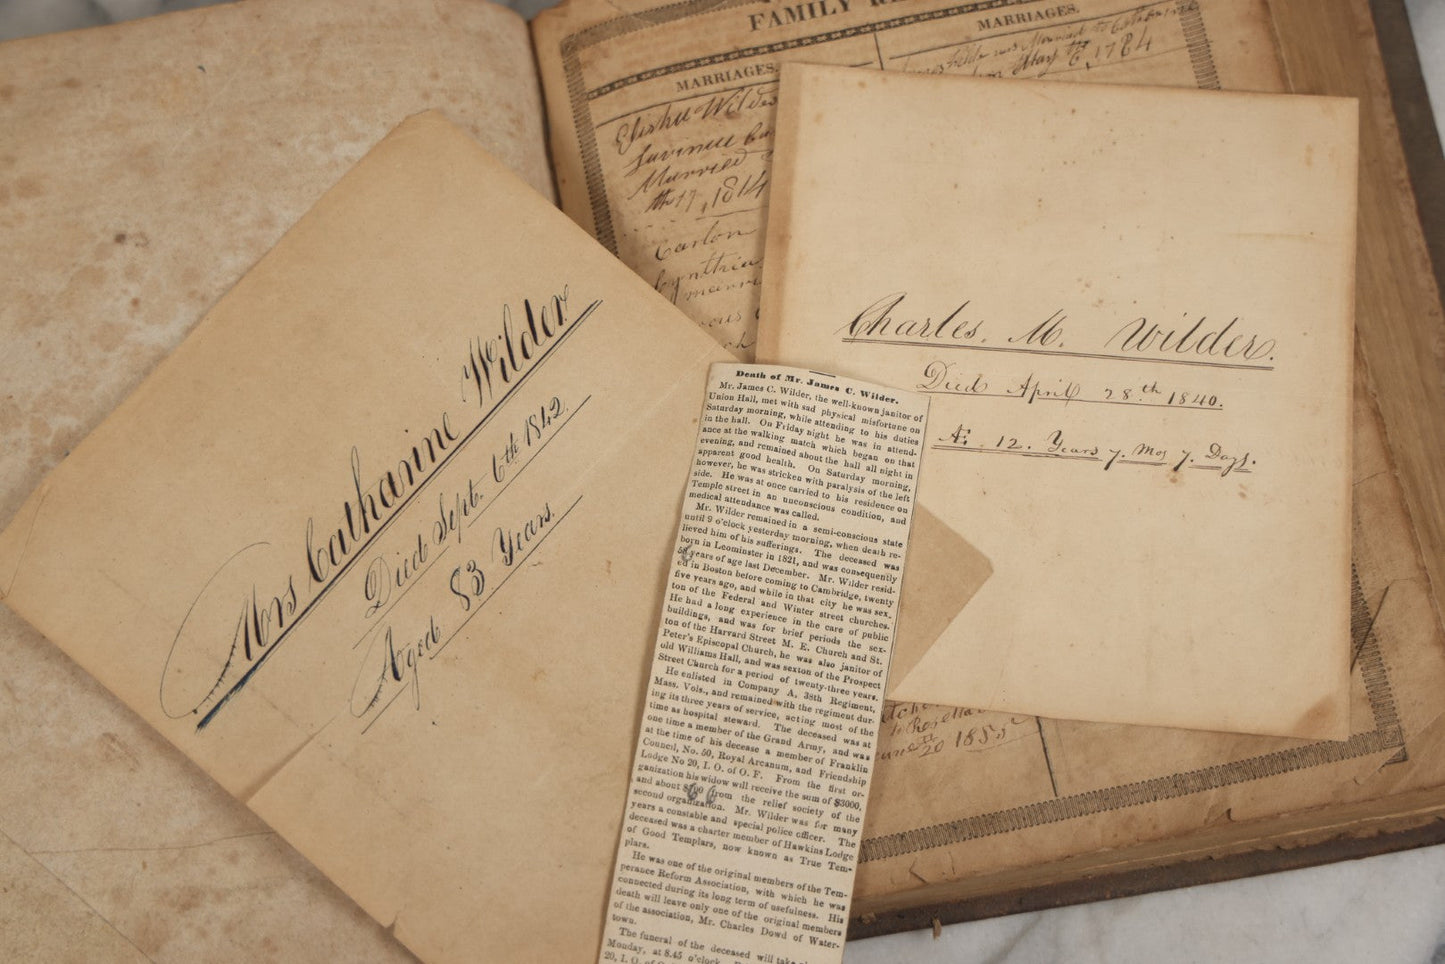 FAMILY
MARRIAGES
MARRIAGES.
Married
May 6, 1784
Elishu Wilder
Lavinia
Married
th 17, 1814
Carlon
Cynthia
20 1855
Mrs Catharine Wilder
Died Sept. 6th 1842.
Aged 83 Years.
Charles. M. Wilder.
Died April 28.th 1840.
Æ. 12. Years 7. Mos 7. Days.
Death of Mr. James C. Wilder.
Mr. James C. Wilder, the well-known janitor of
Union Hall, met with sad physical misfortune on
Saturday morning, while attending to his duties
in the hall. On Friday night he was in attend-
ance at the walking match which began on that
evening, and remained about the hall all night in
apparent good health. On Saturday morning,
however, he was stricken with paralysis of the left
side. He was at once carried to his residence on
Temple street in an unconscious condition, and
medical attendance was called.
Mr. Wilder remained in a semi-conscious state
until 9 o'clock yesterday morning, when death re-
lieved him of his sufferings. The deceased was
born in Leominster in 1821, and was consequently
58 years of age last December. Mr. Wilder resid-
ed in Boston before coming to Cambridge, twenty
five years ago, and while in that city he was sex-
ton of the Federal and Winter street churches.
He had a long experience in the care of public
buildings, and was for brief periods the sex-
ton of the Harvard Street M. E. Church and St.
Peter's Episcopal Church, he was also janitor of
old Williams Hall, and was sexton of the Prospect
Street Church for a period of twenty-three years.
He enlisted in Company A, 38th Regiment,
Mass. Vols., and remained with the regiment dur-
ing its three years of service, acting most of the
time as hospital steward. The deceased was at
one time a member of the Grand Army, and was
at the time of his decease a member of Franklin
Council, No. 50, Royal Arcanum, and Friendship
Lodge No 20, I. O. of O. F. From the first or-
ganization his widow will receive the sum of $3000,
and about from the relief society of the
second organization. Mr. Wilder was for many
years a constable and special police officer. The
deceased was a charter member of Hawkins Lodge
of Good Templars, now known as True Tem-
plars.
He was one of the original members of the Tem-
perance Reform Association, with which he was
connected during its long term of usefulness. His
death will leave only one of the original members
of the association, Mr. Charles Dowd of Water-
town.
The funeral of the deceased will take
Monday, at 8.45 o'clock.
20, I. O. of